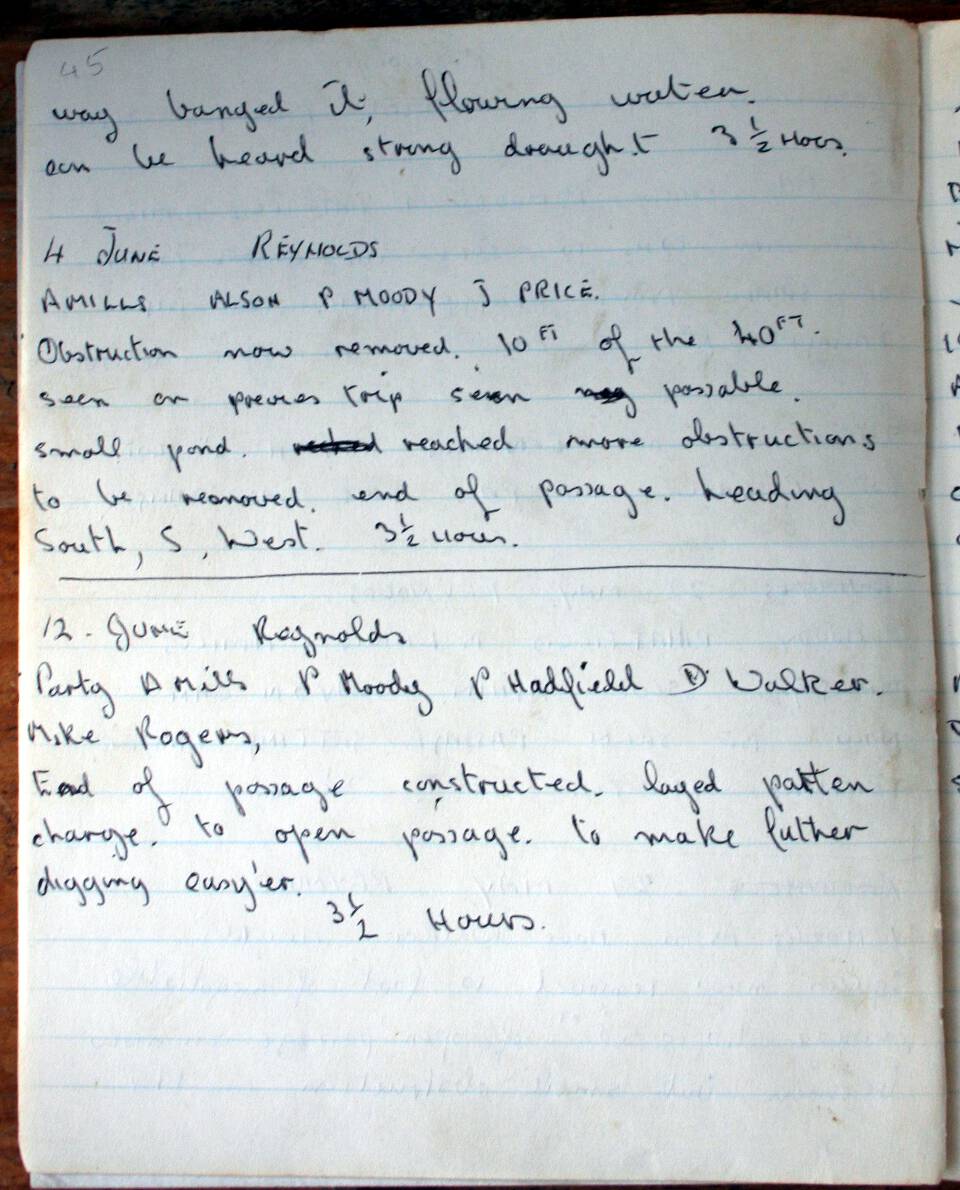 45
way banged it, flowing water.
can be heard strong draught 3 1/2 Hours.
4 JUNE REYNOLDS
A MILLS ALSON P MOODY J PRICE.
Obstruction now removed. 10 FT of the 40 FT.
seen on previes trip seen passable.
small pond. reached more obstructions
to be reomoved. end of passage. heading
South, S, West. 3 1/2 Hours.
12. JUNE Reynolds
Party A Mills P Moody P Hadfield D Walker.
Mike Rogers,
End of passage constructed. layed patten
charge. to open passage. to make futher
digging easy'er.
3 1/2 Hours.